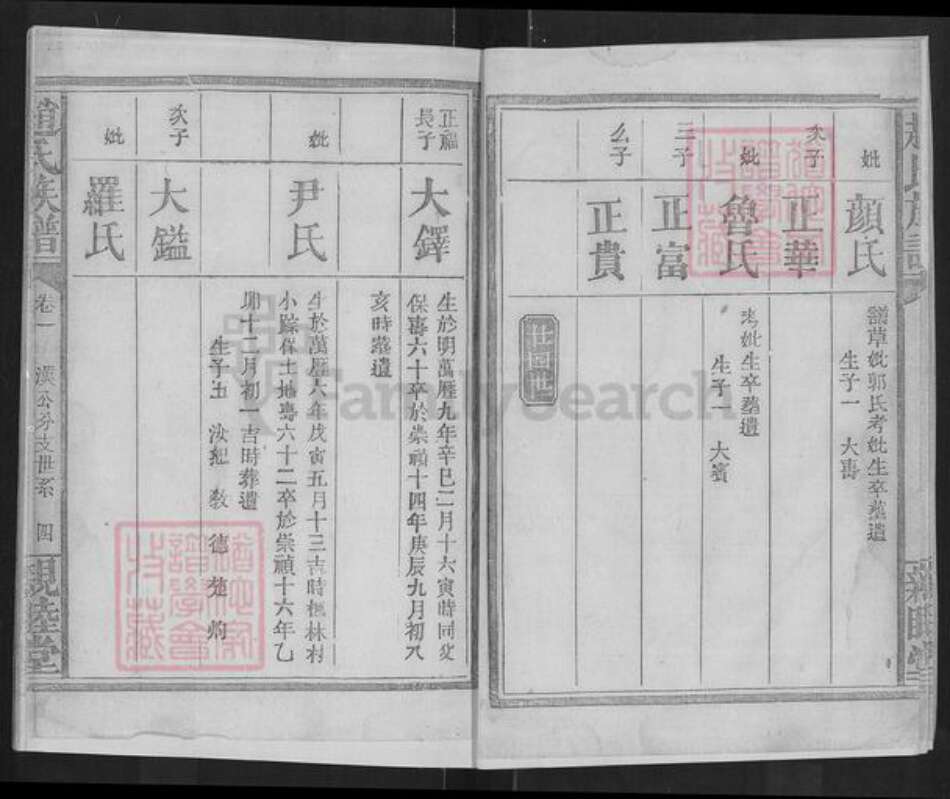 妣
顏氏
譜草妣郭氏考妣生卒葬遺
生子一 大壽
次子
正華
妣
魯氏
考妣生卒葬遺
生子一 大賓
三子
正富
么子
正貴
正福長子
大鐸
生於明萬歷九年辛巳二月十六寅時同父
保壽六十卒於崇禎十四年庚辰九月初八
亥時葬遺
妣
尹氏
生於萬歷六年戊寅五月十三吉時楓林村
小 保土地壽六十二卒於崇禎十六年乙
卯十二月初一吉時葬遺
生子五 汝 敎 德 楚 灼
次子
大鎰
妣
羅氏
趙氏族譜
卷一
漢公分支世系
四
親睦堂
FamilySearch